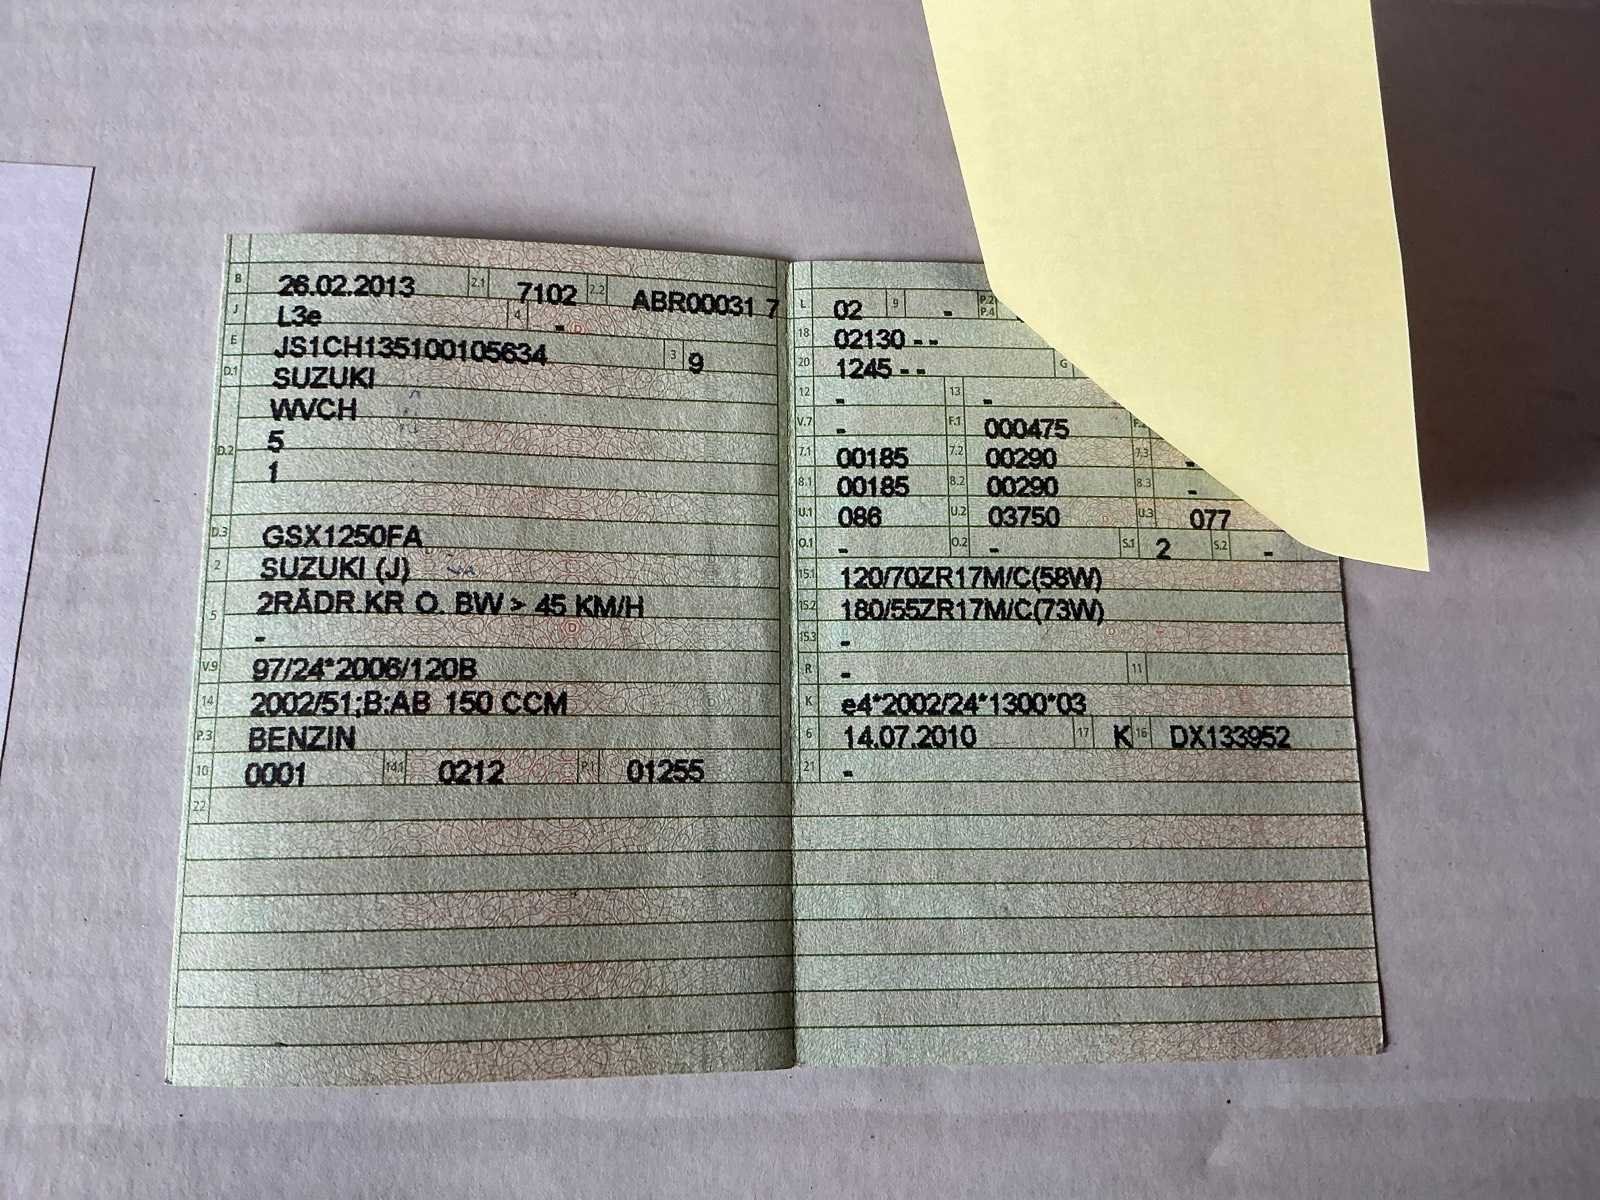 B 26.02.2013 2.1 7102 2.2 ABR00031 7
J L3e 4 -
E JS1CH135100105634 3 9
D.1 SUZUKI
WVCH
D.2 5
1
D.3 GSX1250FA
2 SUZUKI (J)
5 2RÄDR.KR O. BW > 45 KM/H
-
V.9 97/24*2006/120B
14 2002/51;B:AB 150 CCM
P.3 BENZIN
10 0001 14.1 0212 P.1 01255
22
L 02 9 - P.2 P.4
18 02130 - -
20 1245 - - G
12 - 13 -
V.7 - F.1 000475
7.1 00185 7.2 00290 7.3 -
8.1 00185 8.2 00290 8.3 -
U.1 086 U.2 03750 U.3 077
O.1 - O.2 - S.1 2 S.2 -
15.1 120/70ZR17M/C(58W)
15.2 180/55ZR17M/C(73W)
15.3 -
R - 11
K e4*2002/24*1300*03
6 14.07.2010 17 K 16 DX133952
21 -